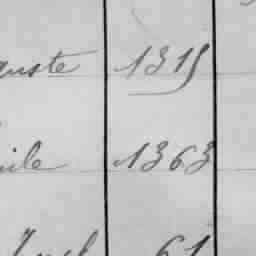 uste 1315
ile 1363
61